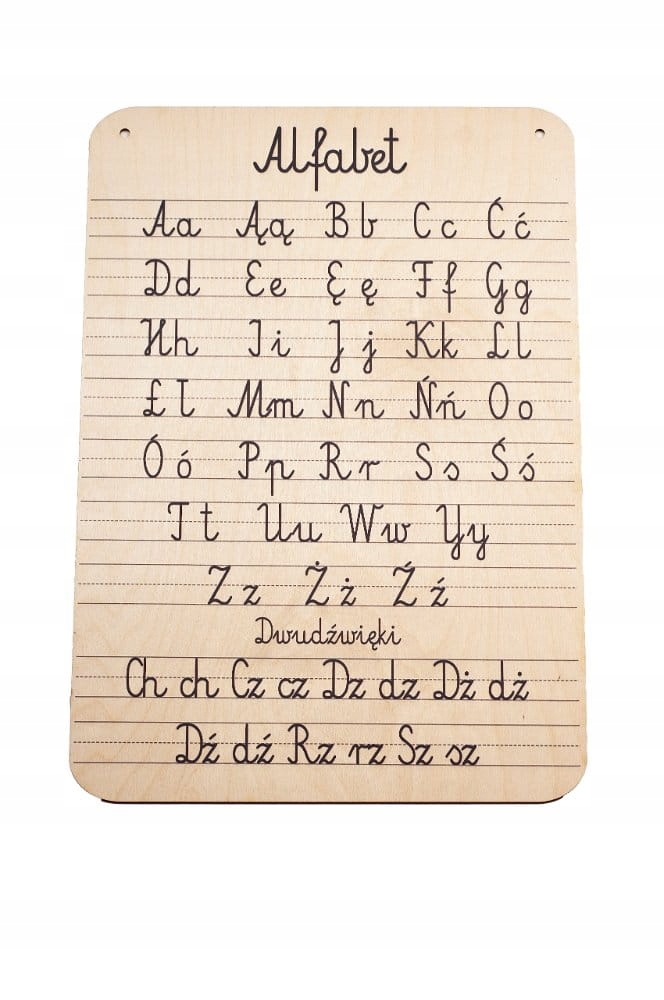 Alfabet
Aa Ąą Bb Cc Ćć
Dd Ee Ęę Ff Gg
Hh Ii Jj Kk Ll
Łł Mm Nn Ńń Oo
Óó Pp Rr Ss Śś
Tt Uu Ww Yy
Zz Żż Źź
Dwudźwięki
Ch ch Cz cz Dz dz Dż dż
Dź dź Rz rz Sz sz